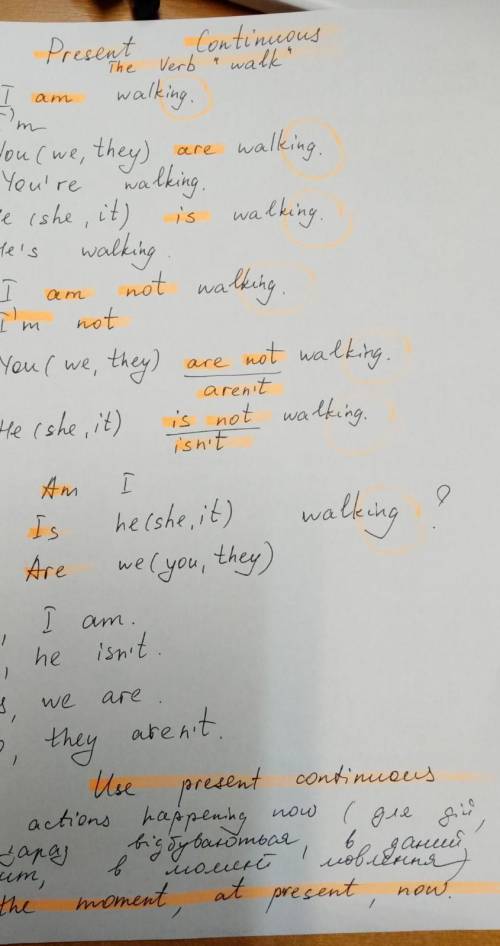 Present Continuous
The Verb "walk"
I am walking.
I'm
You (we, they) are walking.
You're walking.
(she, it) is walking.
He's walking.
I am not walking.
I'm not
You (we, they) are not walking.
aren't
He (she, it) is not walking.
isn't
Am I
Is he (she, it) walking ?
Are we (you, they)
, I am.
, he isn't.
, we are.
, they aren't.
Use present continuous
actions happening now (для дій,
відбуваються, в даний
в момент мовлення)
the moment, at present, now.